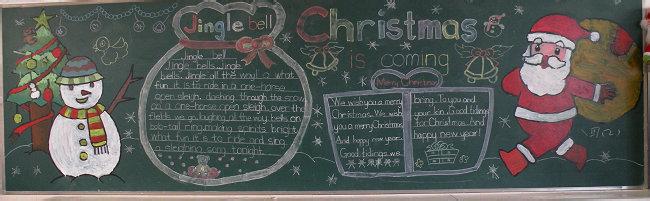 Jingle bell
Jingle bell
Jingle bells. Jingle
bells. Jingle all the way! o what
fun it is to ride in a one-horse
open sleigh. dashing through the snow
in a one-horse open sleigh. over the
fields we go. laughing all the way. bells on
bob-tail ring. making spirits bright
what fun it is to ride and sing
a sleighing song tonight.
Christmas
is coming
Merry Christmas
We wish you a merry
Christmas. We wish
you a merry Christmas
And happy new year!
Good tidings we
bring. To you and
your kin. Good tidings
for Christmas. And
happy new year!